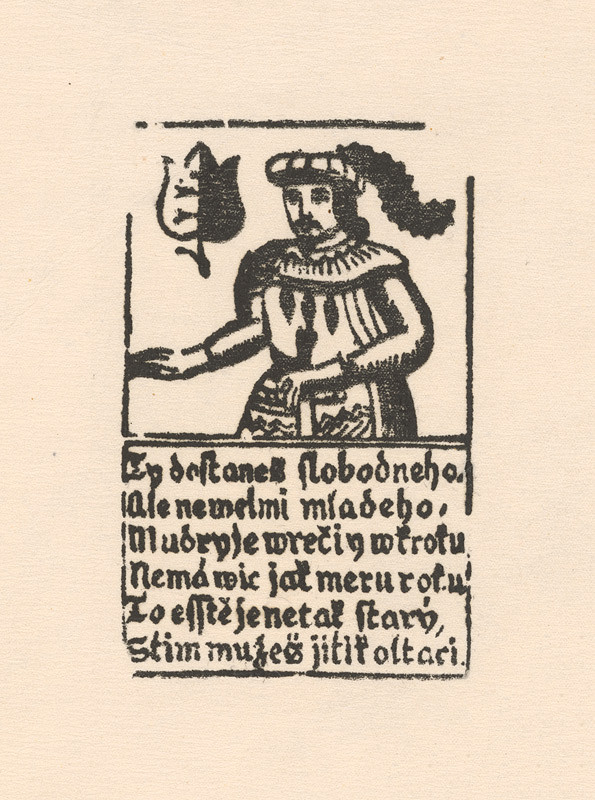 Ty dostaneš slobodneho.
Ale newelmi mladeho,
Mudry je wreči y wkroku
Nemá wic jak meru roku.
To esstě je netak starý,
Stim mužeš jit k oltaci.